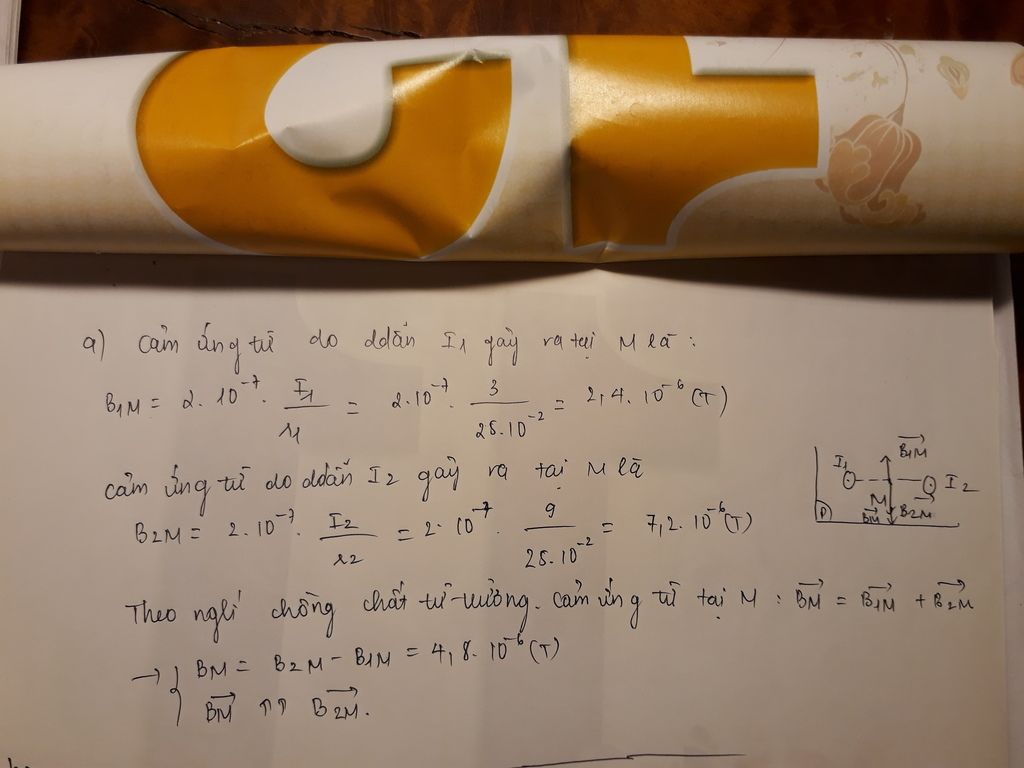 a) Cảm ứng từ do ddẫn I1 gây ra tại M là :
B1M = 2. 10^-7 . I1/r1 = 2.10^-7 . 3/(25.10^-2) = 2,4. 10^-6 (T)
cảm ứng từ do ddẫn I2 gây ra tại M là
B2M = 2. 10^-7 . I2/r2 = 2. 10^-7 . 9/(25.10^-2) = 7,2. 10^-6 (T)
B1M→
I1 I2
M
BM→ B2M→
P)
Theo nglí chồng chất từ trường. cảm ứng từ tại M : BM→ = B1M→ + B2M→
→ { BM = B2M - B1M = 4,8. 10^-6 (T)
BM→ ↑↑ B2M→.